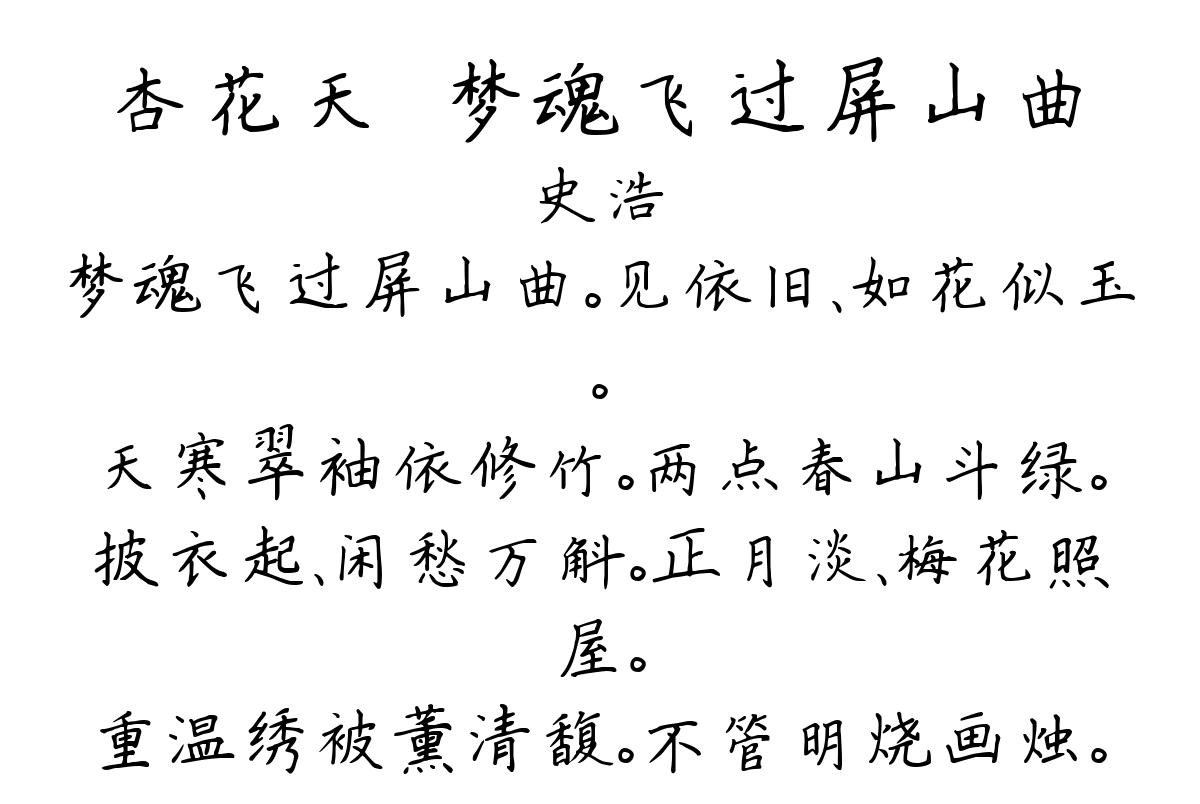 杏花天 梦魂飞过屏山曲
史浩
梦魂飞过屏山曲。见依旧、如花似玉
。
天寒翠袖依修竹。两点春山斗绿。
披衣起、闲愁万斛。正月淡、梅花照
屋。
重温绣被薰清馥。不管明烧画烛。